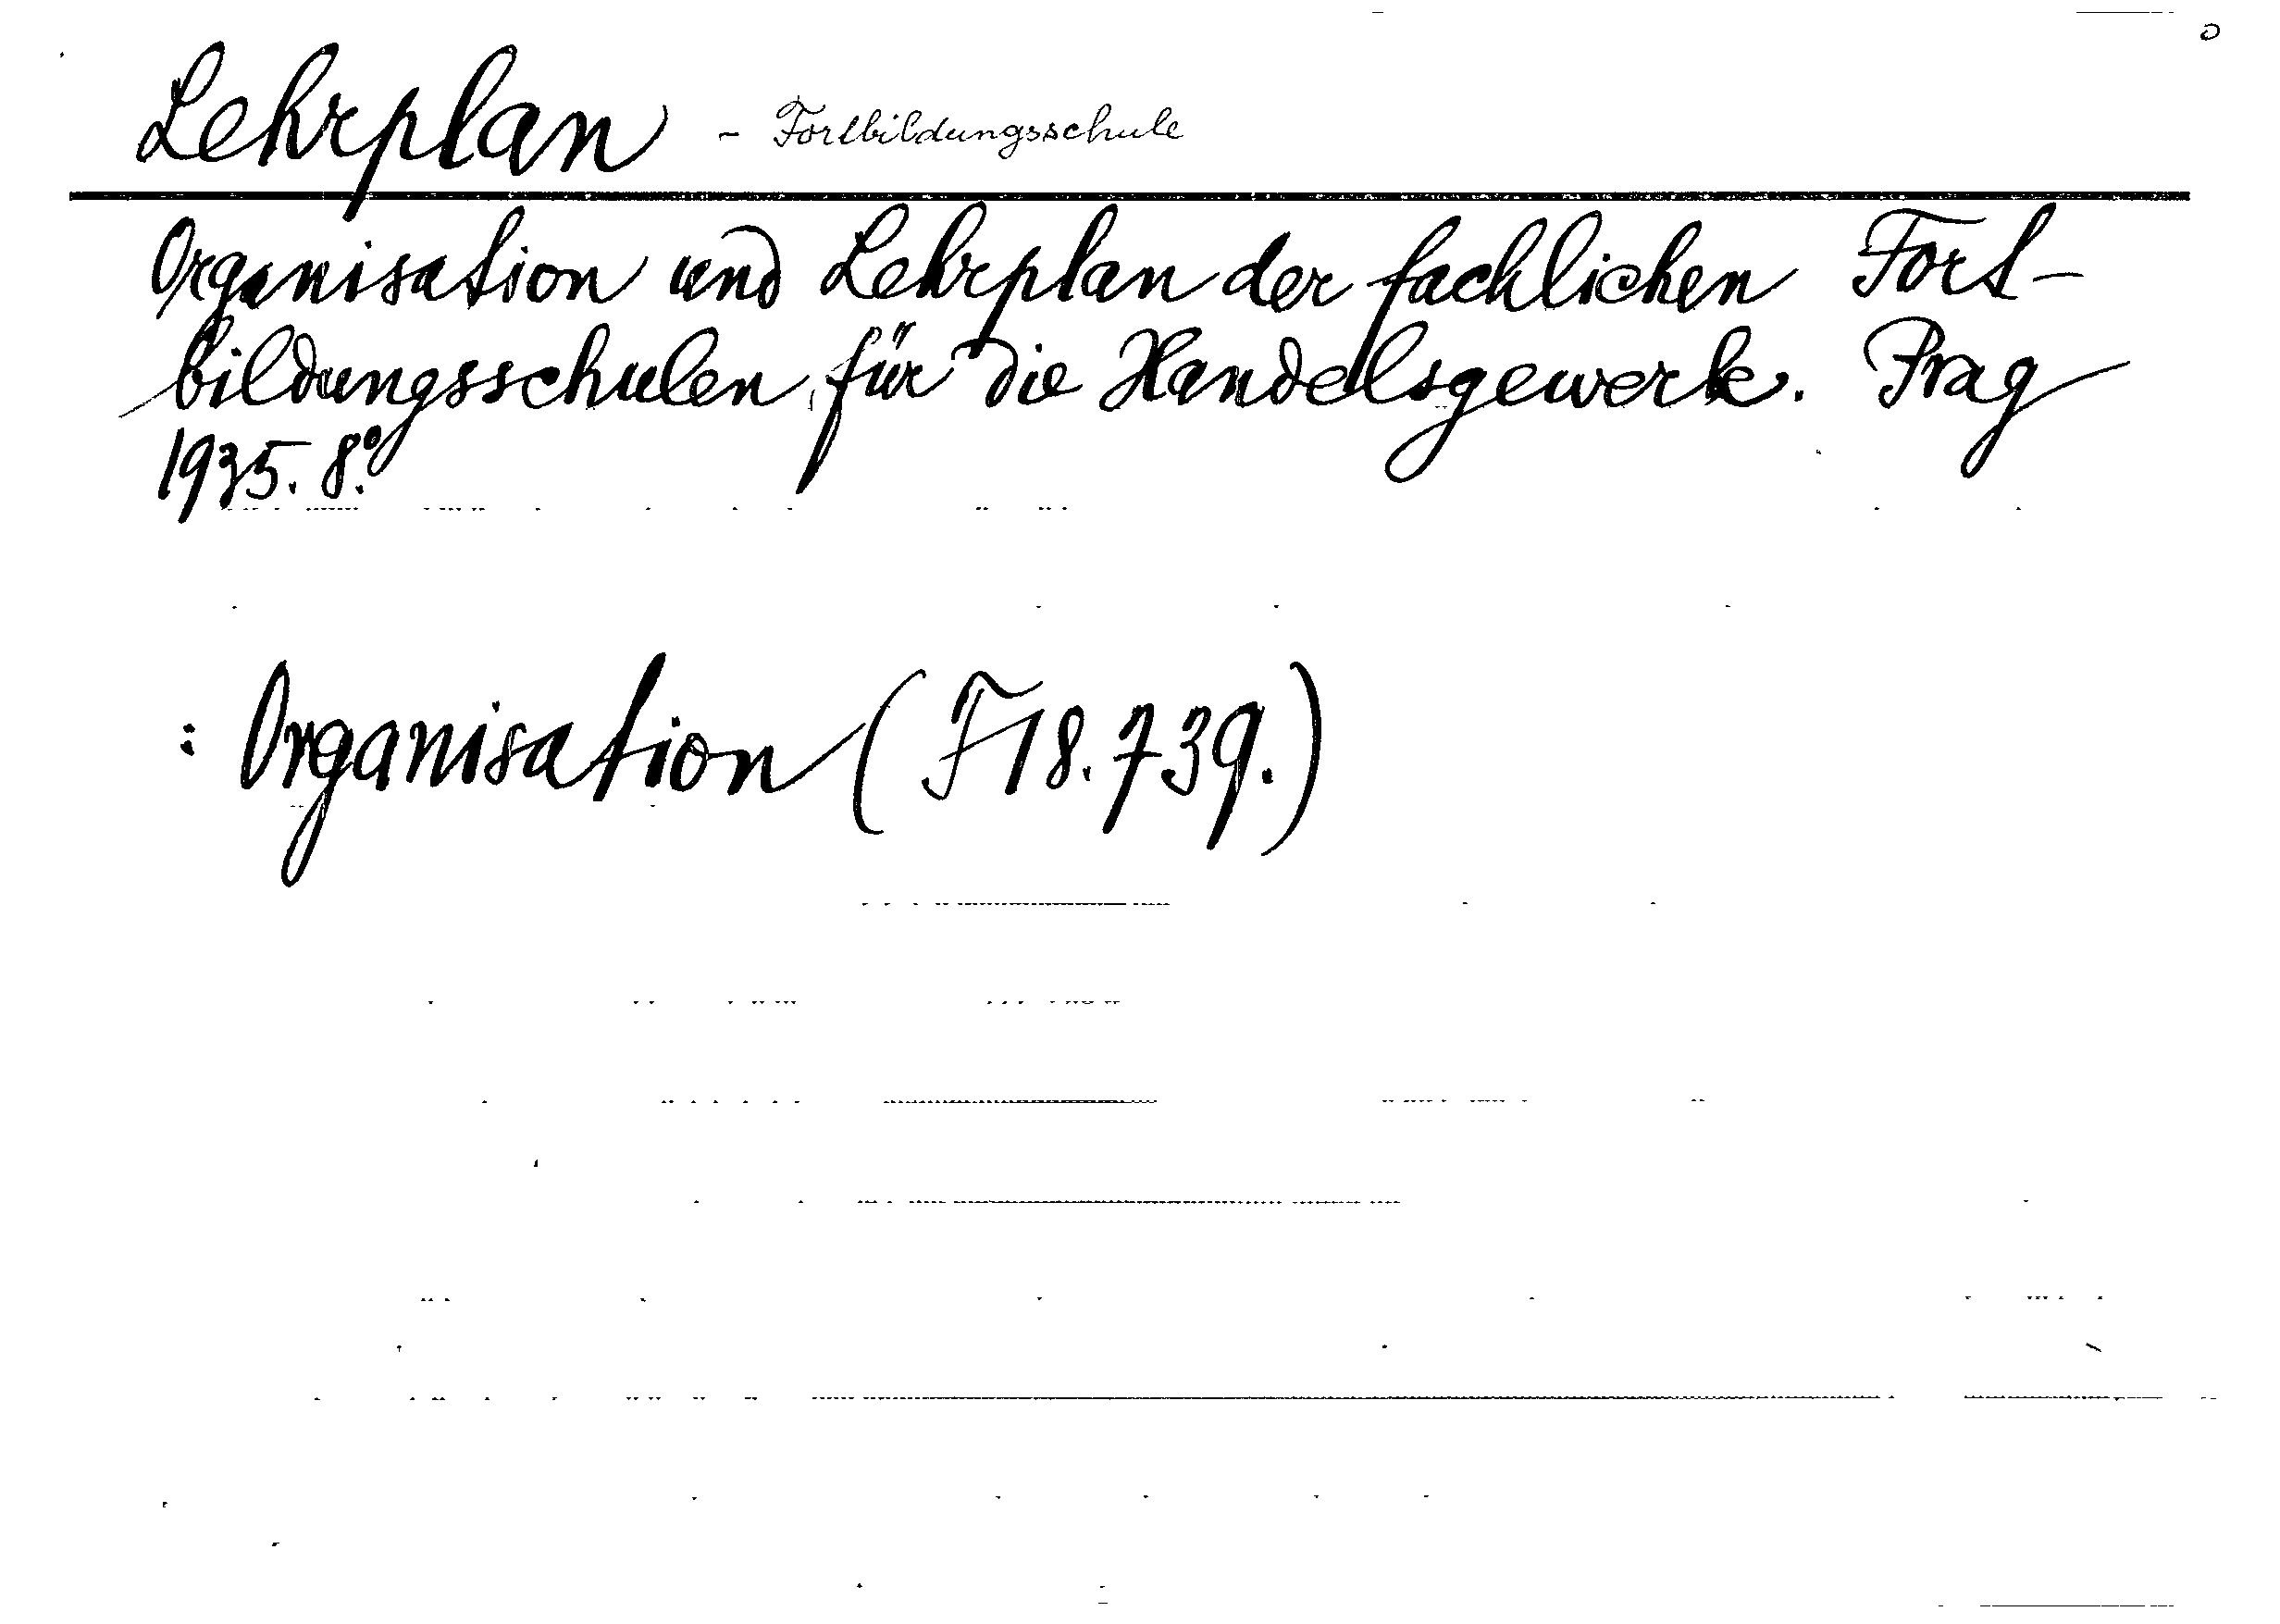 Lehrplan - Fortbildungsschule
Organisation und Lehrplan der fachlichen Fort-
bildungsschulen für die Handelsgewerbe. Prag
1935. 8.º
: Organisation (F 18.739.)